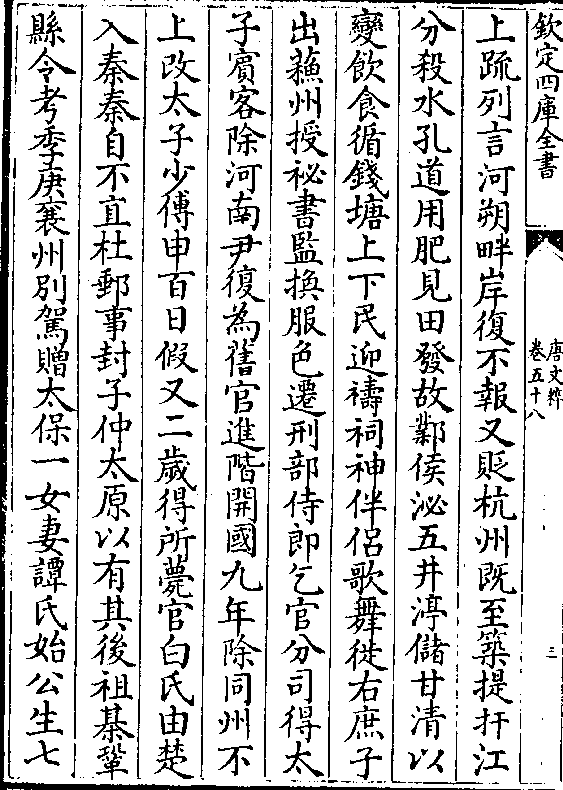 欽定四庫全書
唐文粹
卷五十八
三
上疏列言河朔畔岸復不報又貶杭州既至築提扞江
分殺水孔道用肥見田發故鄴侯泌五井渟儲甘清以
變飲食循錢塘上下民迎禱祠神伴侶歌舞徙右庶子
出蘓州授祕書監換服色遷刑部侍郎乞官分司得太
子賓客除河南尹復為舊官進階開國九年除同州不
上改太子少傅申百日假又二歲得所薨官白氏由楚
入秦秦自不直杜郵事封子仲太原以有其後祖𣖕鞏
縣令考季庚襄州別駕贈太保一女妻譚氏始公生七